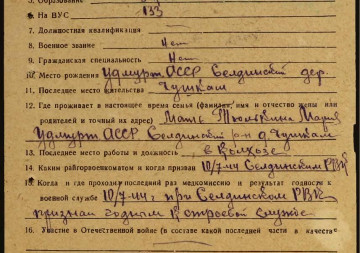 5. Образование
6. На ВУС 133
7. Должностная квалификация
8. Военное звание Нет
9. Гражданская специальность Нет
10. Место рождения Удмурт АССР Селдинский дер.
11. Последнее место жительства Чушкам
12. Где проживает в настоящее время семья (фамилия, имя и отчество жены или
родителей и точный их адрес) Мать Мария
Удмурт АССР Селдинский р-н д. Чушкам
13. Последнее место работы и должность в Колхозе
14. Каким райгорвоенкоматом и когда призван 10/7-44 Селдинским РВК
15. Когда и где проходил последний раз медкомиссию и результат годности к
военной службе 10/7-44, при Селдинском РВК
признан годным к строевой службе
16. Участие в Отечественной войне (в составе какой последней части и качестве